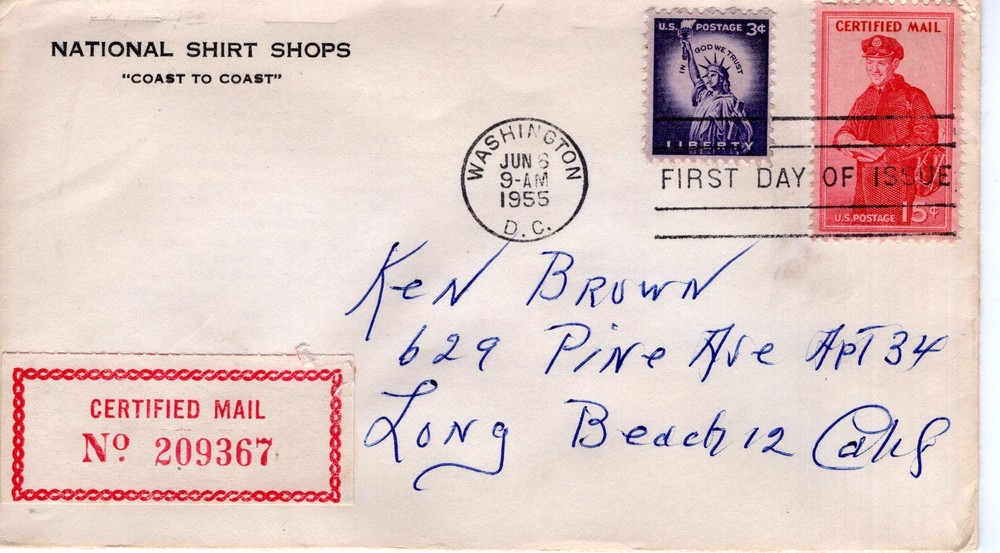 NATIONAL SHIRT SHOPS
"COAST TO COAST"
U.S. POSTAGE 3¢
IN GOD WE TRUST
LIBERTY
CERTIFIED MAIL
U.S. POSTAGE 15¢
WASHINGTON
JUN 6
9-AM
1955
D.C.
FIRST DAY OF ISSUE
Ken Brown
629 Pine Ave Apt 34
Long Beach 12 Calif
CERTIFIED MAIL
No 209367